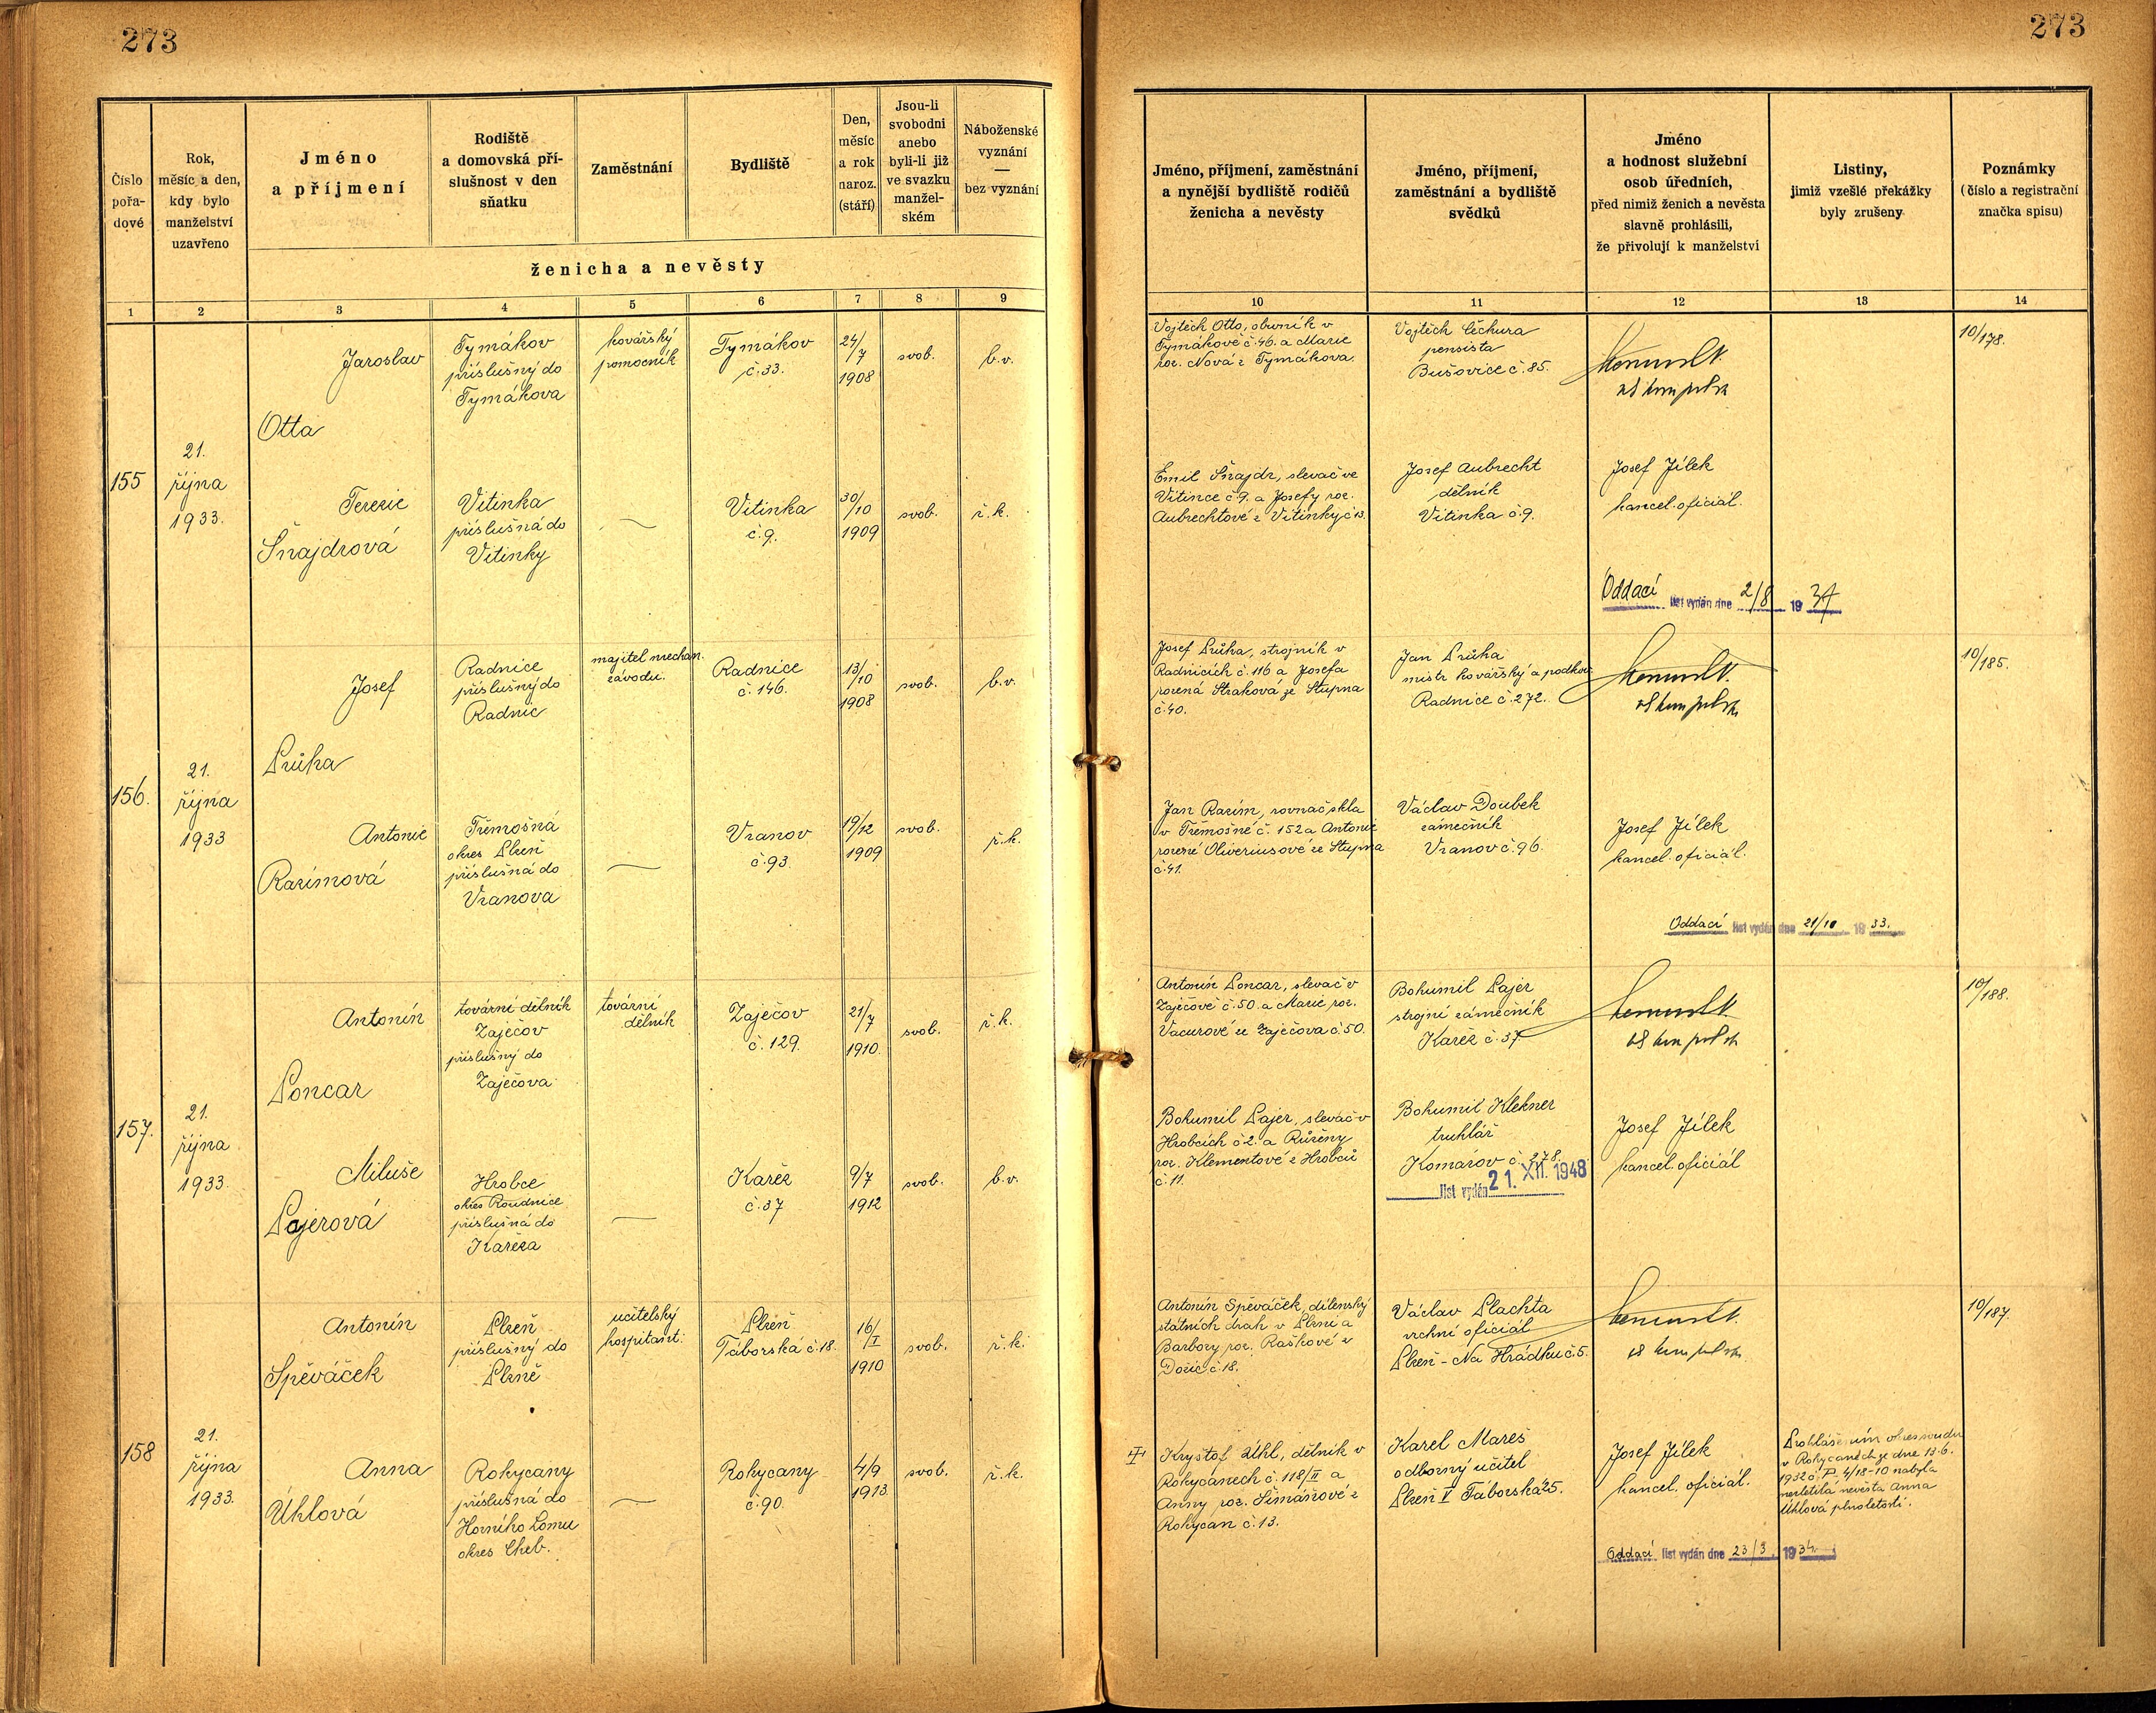 273
273
Číslo
pořa-
dové
Rok,
měsíc a den,
kdy bylo
manželství
uzavřeno
Jméno
a příjmení
Rodiště
a domovská pří-
slušnost v den
sňatku
Zaměstnání
Bydliště
Den,
měsíc
a rok
naroz.
(stáří)
Jsou-li
svobodni
anebo
byli-li již
ve svazku
manžel-
ském
Náboženské
vyznání
—
bez vyznání
ženicha a nevěsty
Jméno, příjmení, zaměstnání
a nynější bydliště rodičů
ženicha a nevěsty
Jméno, příjmení,
zaměstnání a bydliště
svědků
Jméno
a hodnost služební
osob úředních,
před nimiž ženich a nevěsta
slavně prohlásili,
že přivolují k manželství
Listiny,
jimiž vzešlé překážky
byly zrušeny
Poznámky
(číslo a registrační
značka spisu)
1 2 3 4 5 6 7 8 9
10 11 12 13 14
155
21.
října
1933.
Jaroslav
Otta
Tymákov
příslušný do
Tymákova
kovářský
pomocník
Tymákov
č. 33.
24/
7
1908
svob.
b.v.
Vojtěch Otto, obuvník v
Tymákově č. 46. a Marie
roz. Nová z Tymákova.
Vojtěch Čechura
pensista
Bušovice č. 85.
10/178.
Terezie
Šnajdrová
Vitinka
příslušná do
Vitinky
Vitinka
č. 9.
30/
10
1909
svob.
ř.k.
Emil Šnajdr, slevač ve
Vitince č 9. a Josefy roz.
Aubrechtové z Vitinky č 13.
Josef Aubrecht
dělník
Vitinka č. 9.
Josef Jílek
kancel. oficiál.
Oddací list vydán dne 2/8 19 34
156.
21.
října
1933
Josef
Průha
Radnice
příslušný do
Radnic
majitel mechan.
závodu.
Radnice
č. 146.
13/
10
1908
svob.
b.v.
Josef Průha, strojník v
Radnicích č. 116 a Josefa
rozená Straková ze Stupna
č. 40.
Jan Průha
mistr kovářský a podkov.
Radnice č. 272.
10/185.
Antonie
Razímová
Třemošná
okres Plzeň
příslušná do
Vranova
Vranov
č. 93
19/12
1909
svob.
ř.k.
Jan Razím, rovnač skla
v Třemošné č. 152 a Antonie
rozené Oliveriusové ze Stupna
č. 41.
Václav Doubek
zámečník
Vranov č. 96.
Josef Jílek
kancel. oficiál.
Oddací list vydán dne 21/10 19 33.
157.
21.
října
1933.
Antonín
Poncar
tovární dělník
Zaječov
příslušný do
Zaječova
tovární
dělník
Zaječov
č. 129.
21/
7
1910.
svob.
ř.k.
Antonín Poncar, slevač v
Zaječově č. 50. a Marie roz.
Vacurové ze Zaječova č. 50.
Bohumil Pajer
strojní zámečník
Kařez č. 37.
10/188.
Miluše
Pajerová
Hrobce
okres Roudnice
příslušná do
Kařeza
Kařez
č. 37
9/7
1912
svob.
b.v.
Bohumil Pajer, slevač v
Hrobcích č 2. a Růženy
roz. Klementové z Hrobců
č. 11.
Bohumil Klekner
truhlář
Komárov č. 278.
list vydán 21. XII. 1948
Josef Jílek
kancel. oficiál
158
21.
října
1933.
Antonín
Spěváček
Plzeň
příslušný do
Plzně
učitelský
hospitant.
Plzeň
Táborská č. 18.
16/
I
1910
svob.
ř.k.
Antonín Spěváček, dílenský
státních drah v Plzni a
Barbory roz. Raškové z
Dožic č. 18.
Václav Plachta
vrchní oficiál
Plzeň - Na Hrádku č. 5.
10/187.
Anna
Úhlová
Rokycany
příslušná do
Horního Lomu
okres Cheb.
Rokycany
č. 90.
4/9
1913
svob.
ř.k.
Kryštof Úhl, dělník v
Rokycanech č. 118/II a
Anny roz. Šimánové z
Rokycan č. 13.
Karel Mareš
odborný učitel
Plzeň V Táborská 25.
Josef Jílek
kancel. oficiál.
Prohlášením okres. soudu
v Rokycanech ze dne 13.6.
1932 č. P 4/18-10 nabyla
nezletilá nevěsta Anna
Úhlová plnoletosti.
Oddací list vydán dne 23/3. 19 34